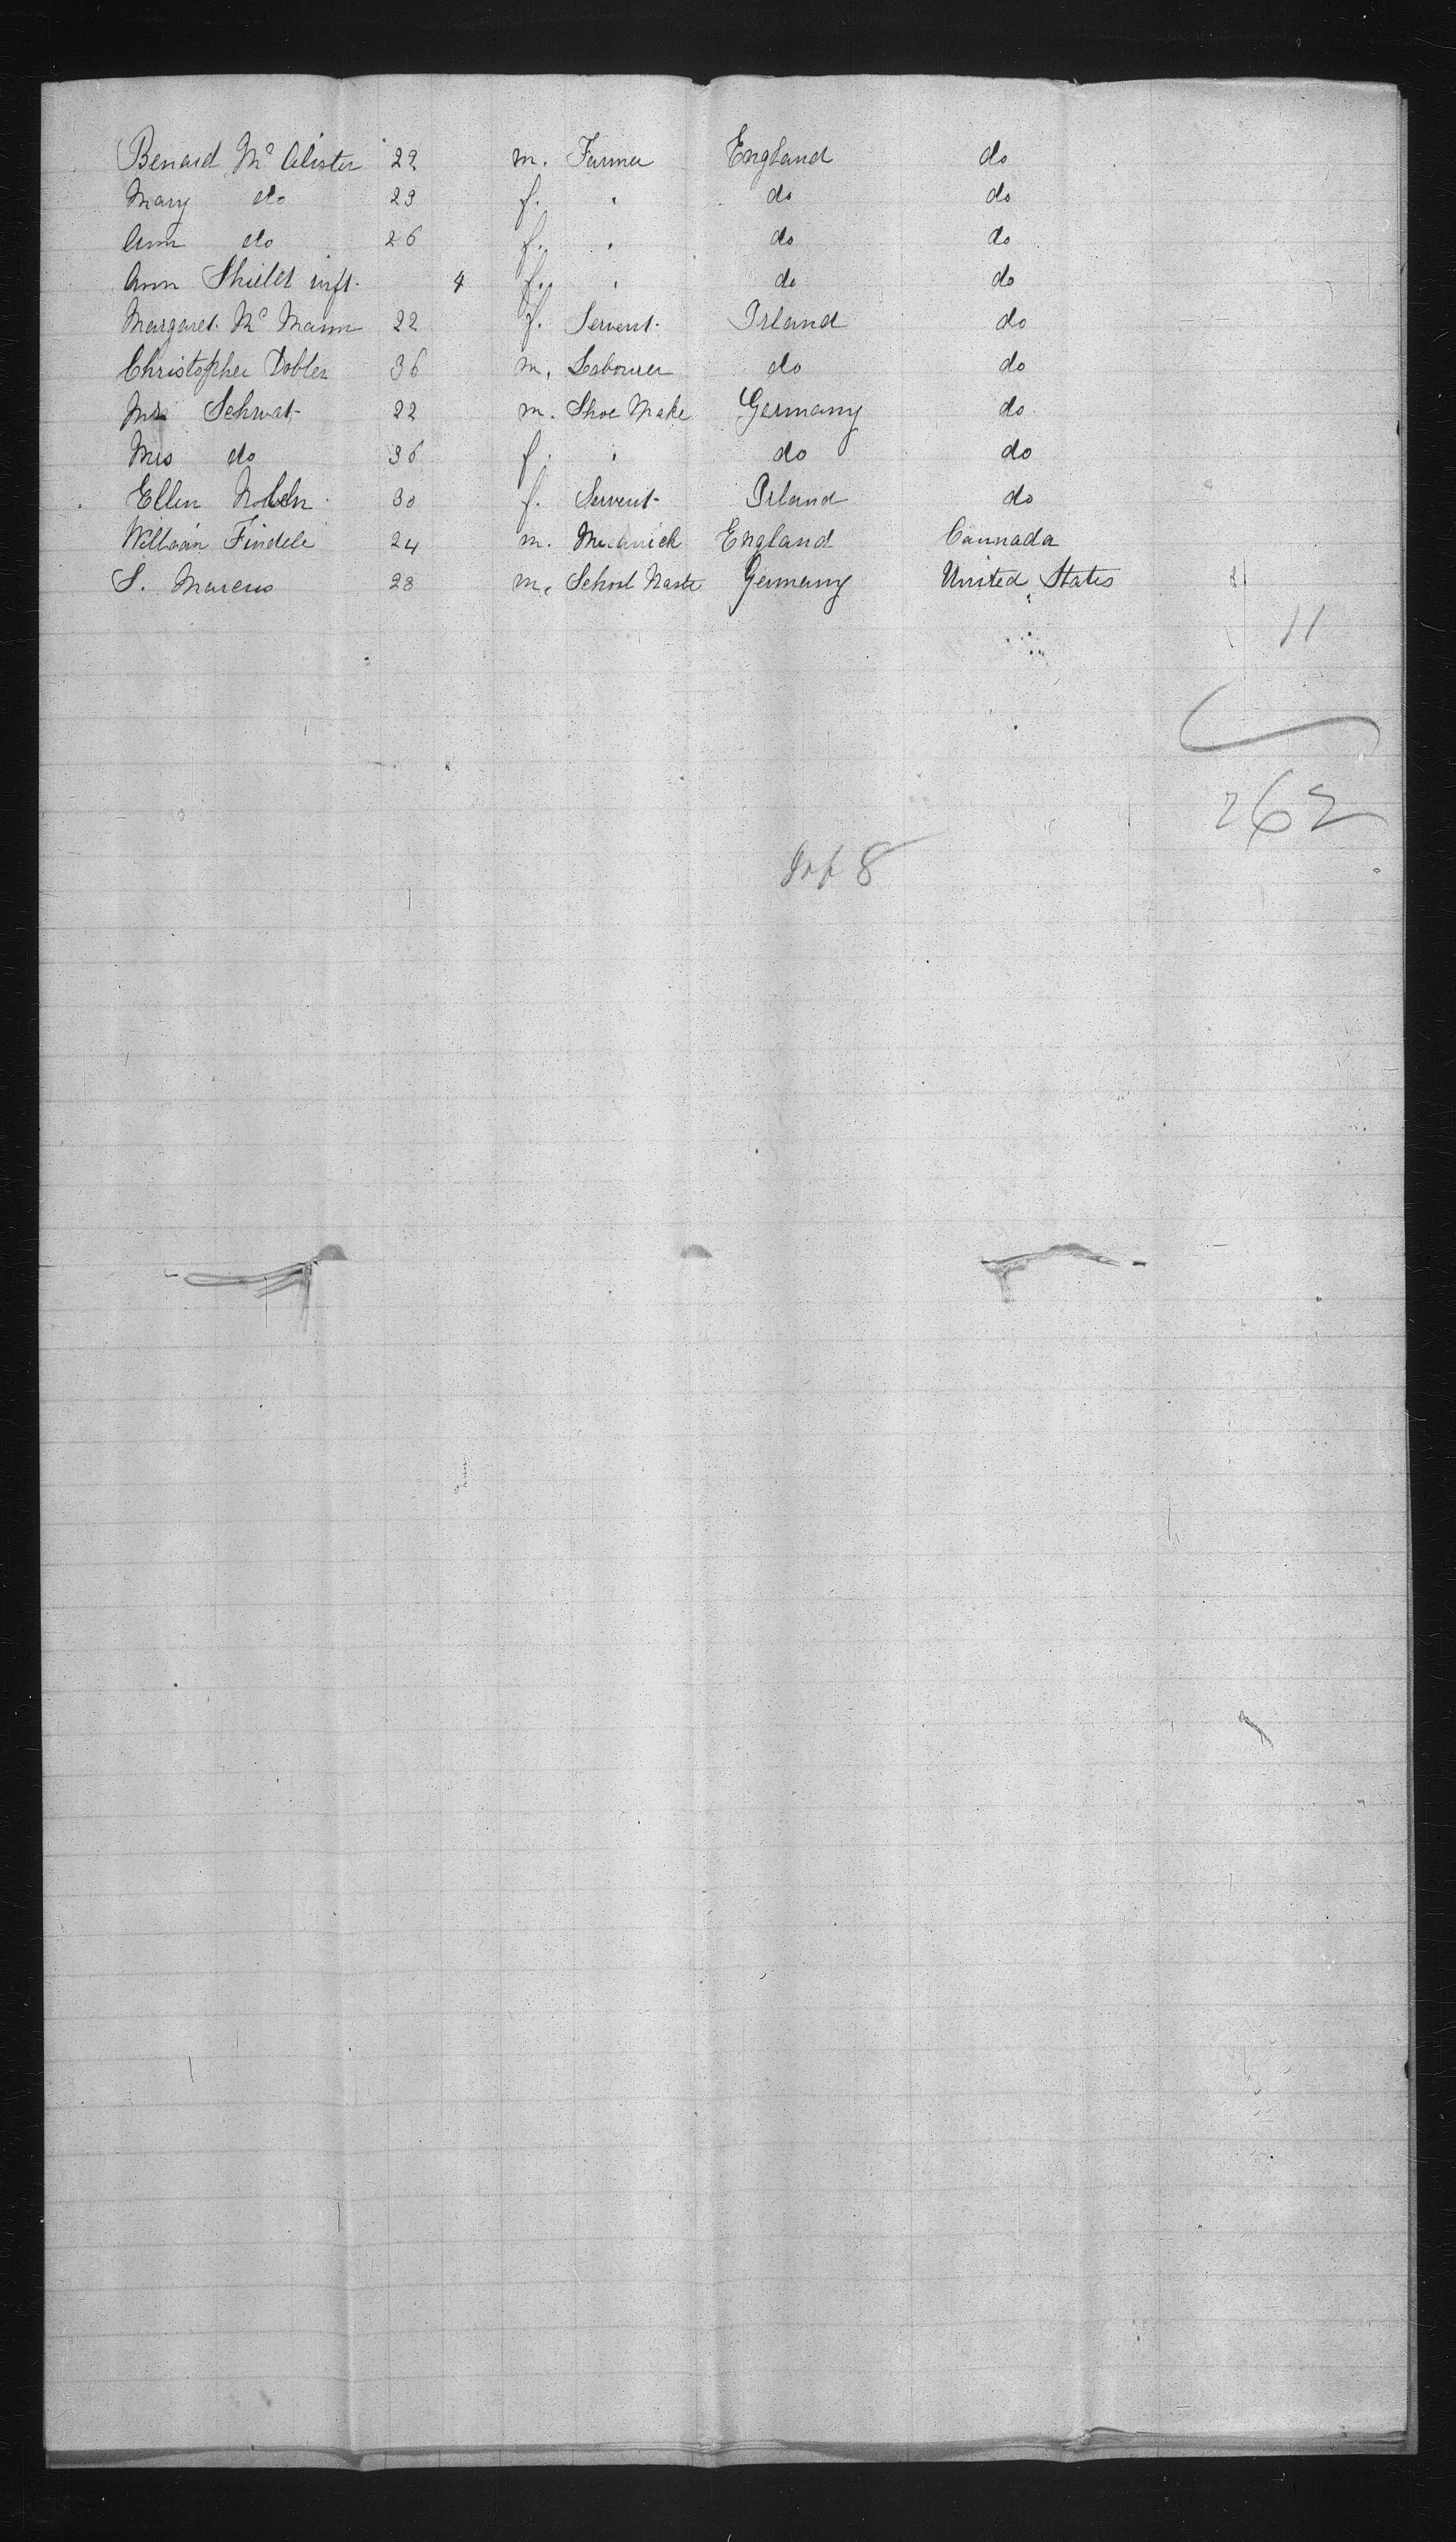 Benard Mc Alister 22 m. Farmer England do
Mary do 23 f. " do do
Ann do 26 f. " do do
Ann Shields inft. 4 f. " do do
Margaret Mc Mann 22 f. Servent Irland do
Christopher Dobler 36 m. Labourer do do
Mr Schwat 22 m. Shoe Make Germany do
Mrs do 36 f. " do do
Ellen 30 f. Servent Irland do
William Findele 24 m. Mechanick England Cannada
S. Marcus 28 m. School Maste Germany United States
11
262
Inf 8